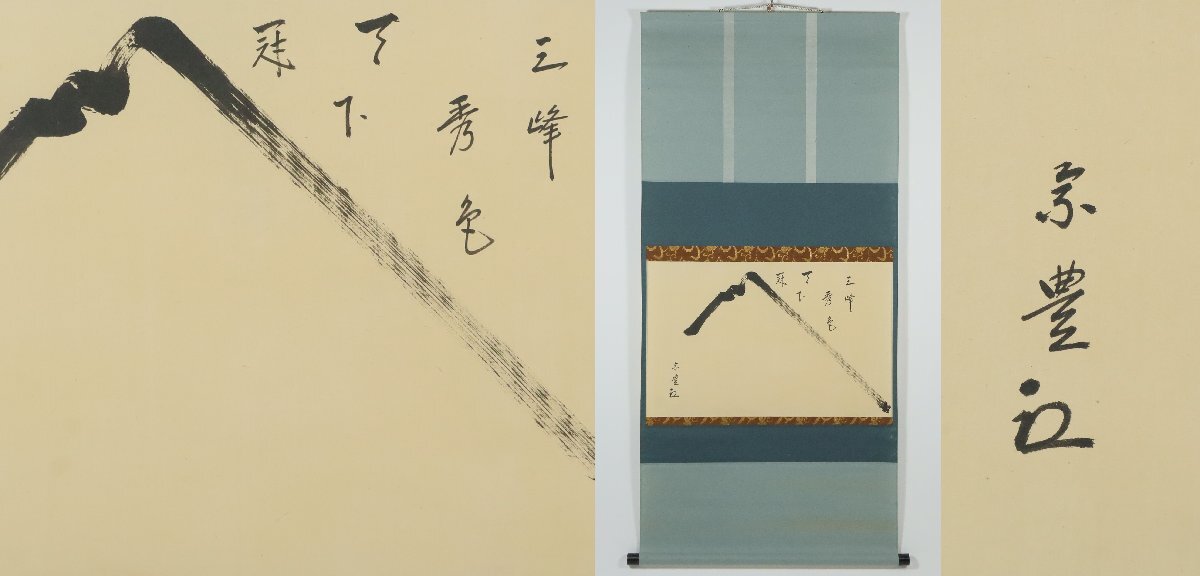 三峰
秀色
天下
冠
三峰
秀色
天下
冠
宗豊
宗豊